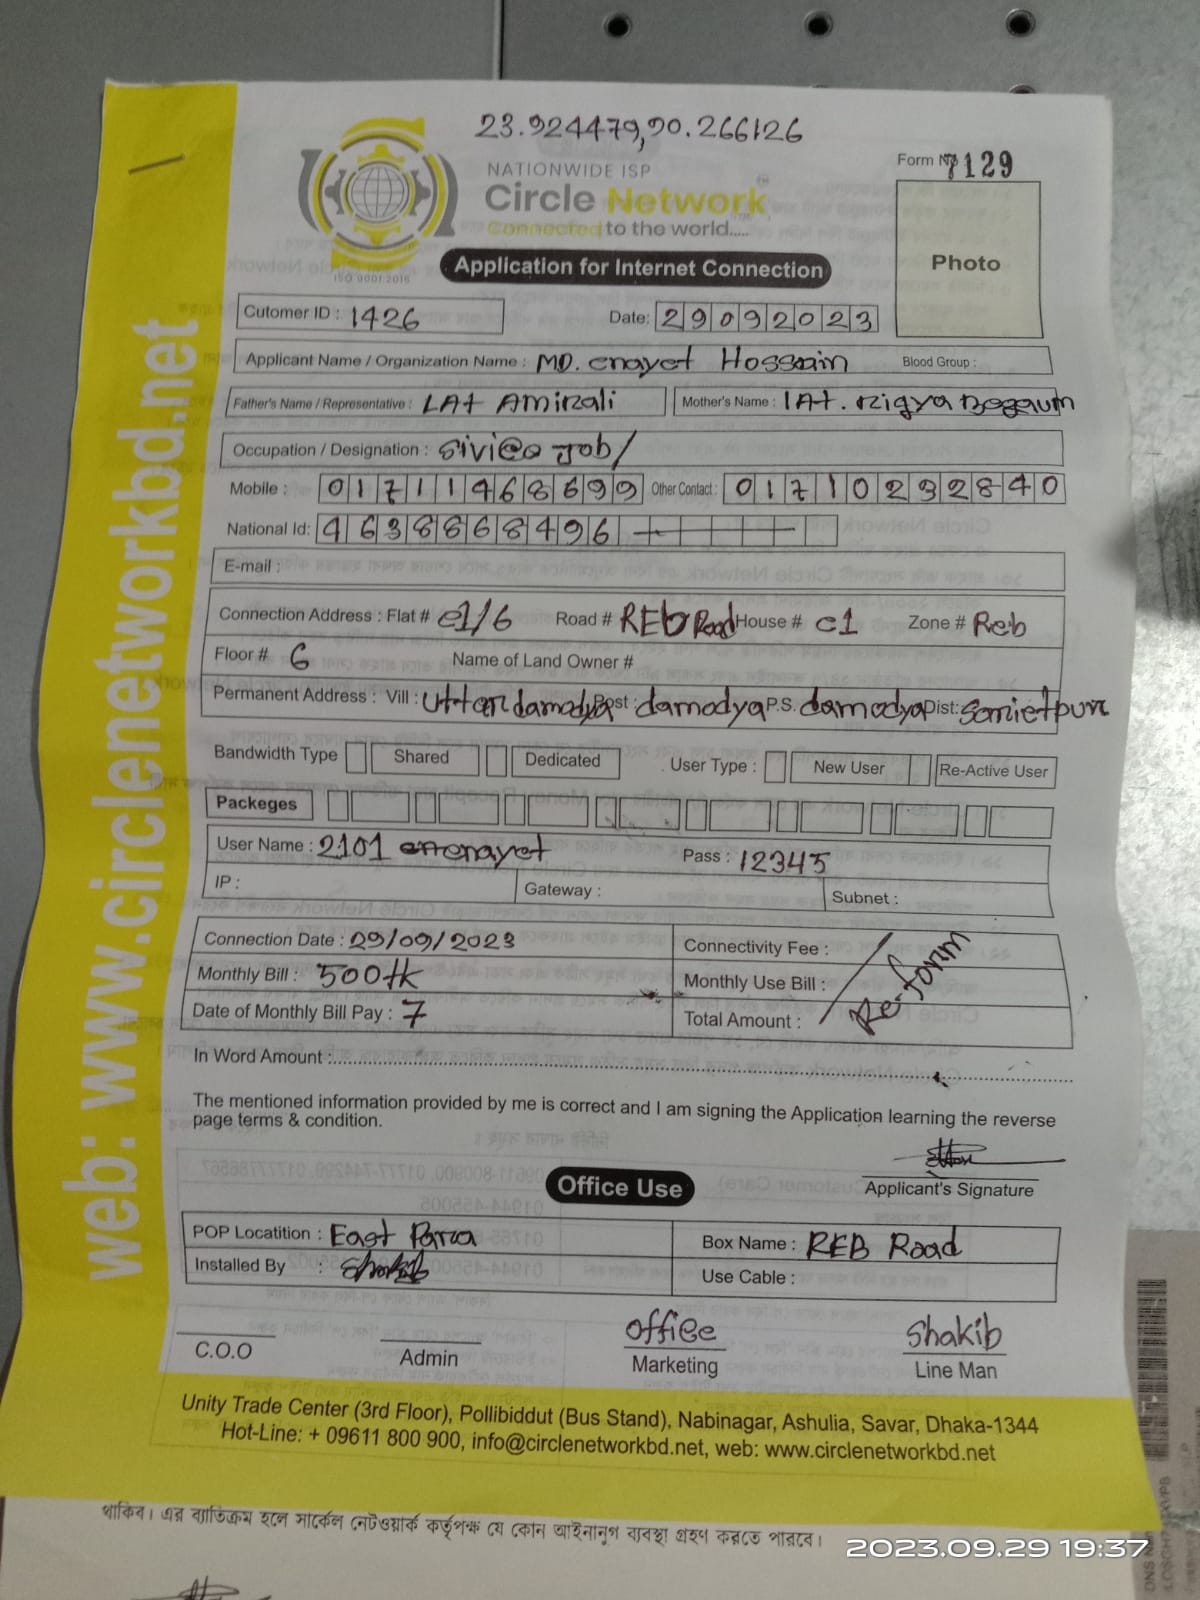 23.924479,90.266126
NATIONWIDE ISP
Form № 7129
Circle Network
Connected to the world.....
ISO 9001:2015
Application for Internet Connection
Photo
Cutomer ID : 1426
Date: 29092023
Applicant Name / Organization Name : MD. enayet Hossain Blood Group :
Father's Name / Representative : LAt Amirali Mother's Name : lAt. Rigya Begaum
Occupation / Designation : Job/
Mobile : 01711468699 Other Contact : 01710232840
National Id: 4638868496
E-mail :
Connection Address : Flat # e1/6 Road # REb Road House # c1 Zone # Reb
Floor # 6 Name of Land Owner #
Permanent Address : Vill : uttar damodya Post : damodya P.S. damodya Dist: Sarietpur
Bandwidth Type Shared Dedicated User Type : New User Re-Active User
Packeges
User Name : 2101 enayet Pass : 12345
IP : Gateway : Subnet :
Connection Date : 29/09/2023 Connectivity Fee :
Monthly Bill : 500tk Monthly Use Bill :
Date of Monthly Bill Pay : 7 Total Amount :
Re-form
In Word Amount :
The mentioned information provided by me is correct and I am signing the Application learning the reverse
page terms & condition.
Applicant's Signature
Office Use
POP Locatition : East Para Box Name : REB Road
Installed By : Shakib Use Cable :
Office Shakib
C.O.O Admin Marketing Line Man
Unity Trade Center (3rd Floor), Pollibiddut (Bus Stand), Nabinagar, Ashulia, Savar, Dhaka-1344
Hot-Line: + 09611 800 900, info@circlenetworkbd.net, web: www.circlenetworkbd.net
web: www.circlenetworkbd.net
থাকিব। এর ব্যতিক্রম হলে সার্কেল নেটওয়ার্ক কর্তৃপক্ষ যে কোন আইনানুগ ব্যবস্থা গ্রহণ করতে পারবে।
2023.09.29 19:37